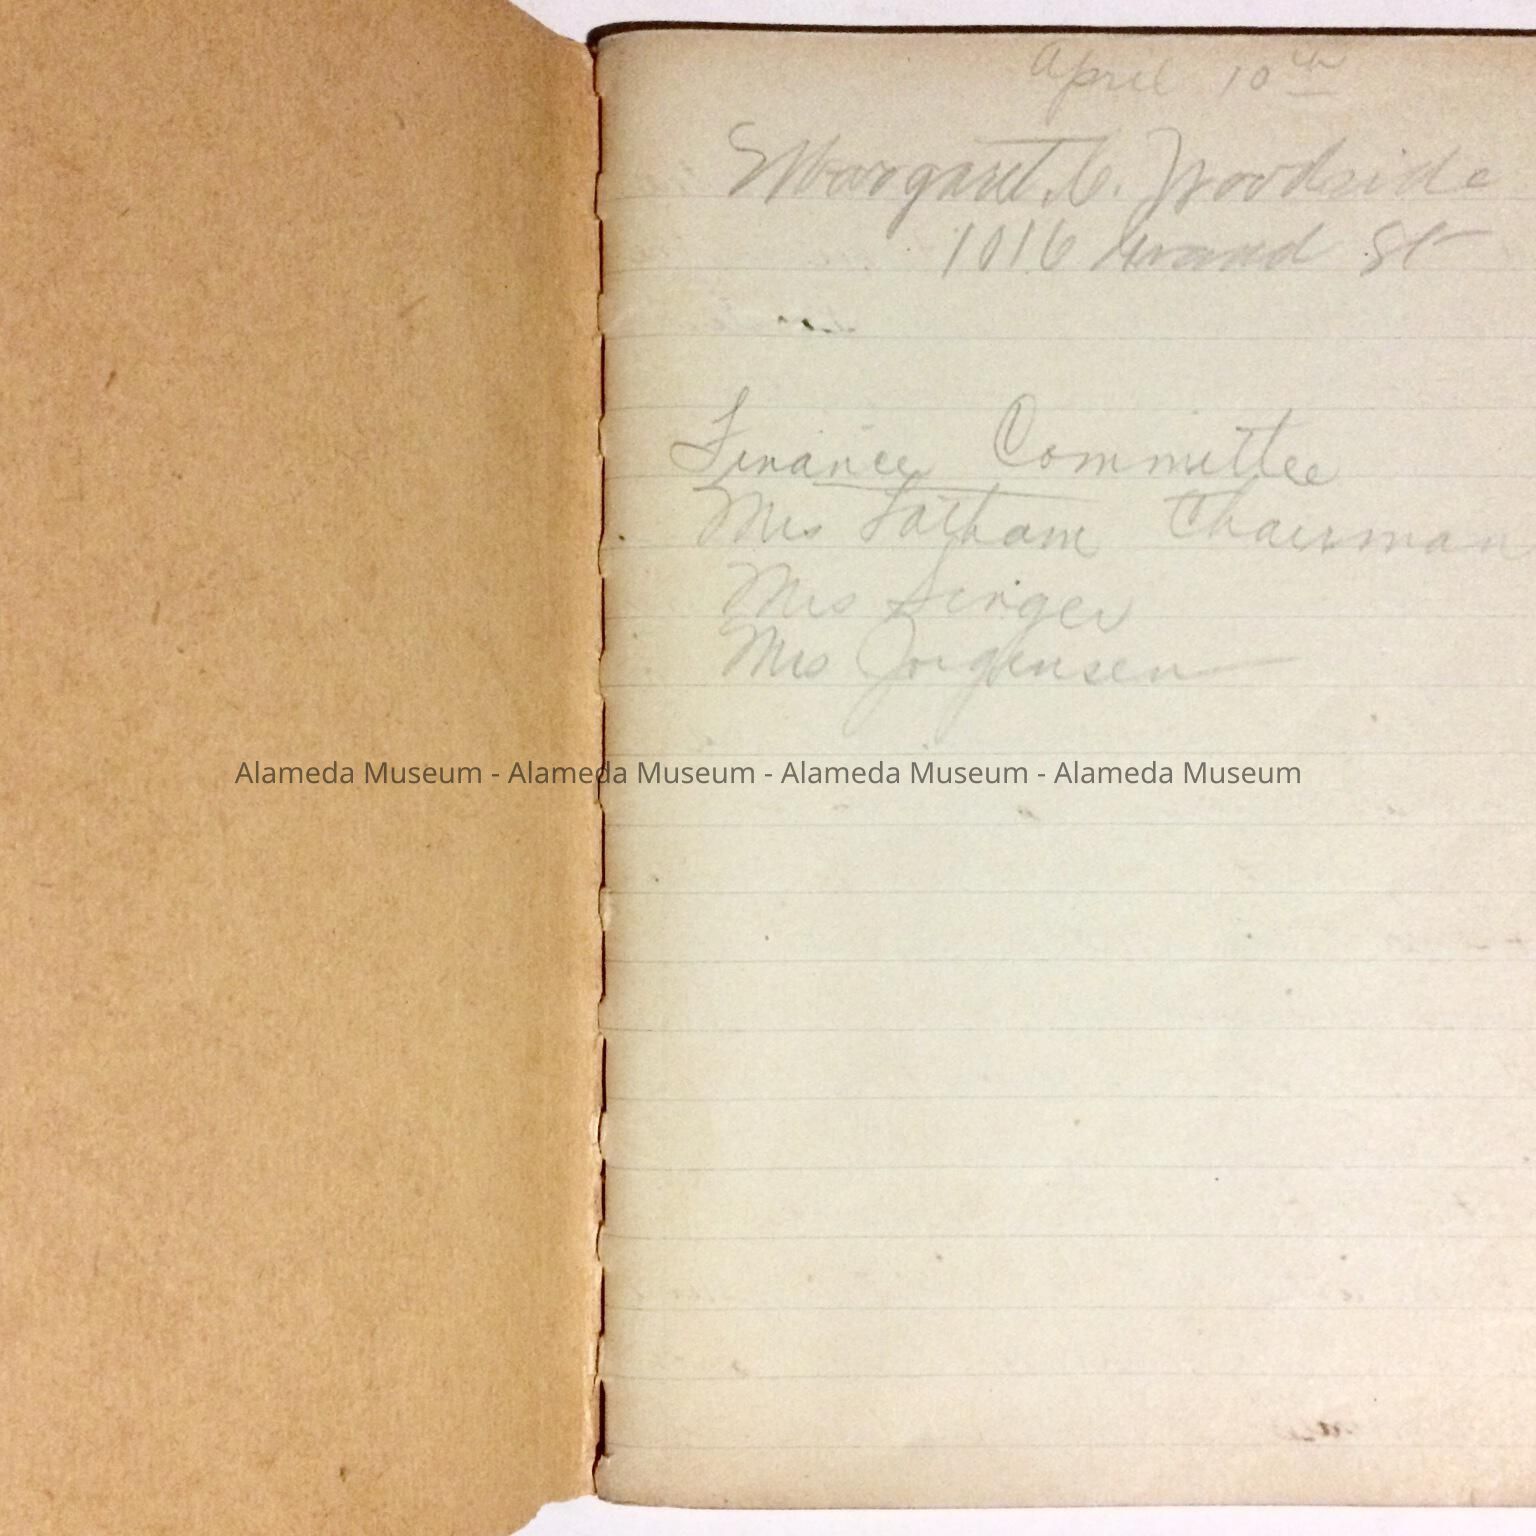 April 10th
Margaret C. Woodside
1016 Grand St
Finance Committee
Mrs Latham Chairman
Mrs Singer
Mrs Jorgensen
Alameda Museum - Alameda Museum - Alameda Museum - Alameda Museum